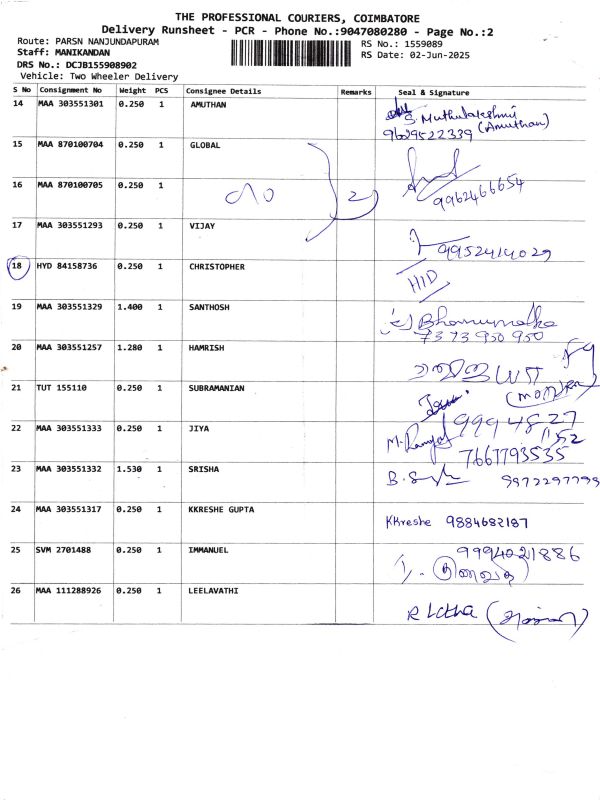 THE PROFESSIONAL COURIERS, COIMBATORE
Delivery Runsheet - PCR - Phone No.:9047080280 - Page No.:2
Route: PARSN NANJUNDAPURAM
RS No.: 1559089
Staff: MANIKANDAN
RS Date: 02-Jun-2025
DRS No.: DCJB155908902
Vehicle: Two Wheeler Delivery
S No Consignment No Weight PCS Consignee Details Remarks Seal & Signature
14 MAA 303551301 0.250 1 AMUTHAN S. Muthulakshmi
9629522339 (Amuthan)
15 MAA 870100704 0.250 1 GLOBAL
16 MAA 870100705 0.250 1 2 9962466654
17 MAA 303551293 0.250 1 VIJAY 9952414029
18 HYD 84158736 0.250 1 CHRISTOPHER HID
19 MAA 303551329 1.400 1 SANTHOSH
7373950950
20 MAA 303551257 1.280 1 HAMRISH
21 TUT 155110 0.250 1 SUBRAMANIAN
22 MAA 303551333 0.250 1 JIYA 9994827
1152
7667793535
23 MAA 303551332 1.530 1 SRISHA 9972297799
24 MAA 303551317 0.250 1 KKRESHE GUPTA KKreshe 9884682187
25 SVM 2701488 0.250 1 IMMANUEL 9994021886
26 MAA 111288926 0.250 1 LEELAVATHI R Latha